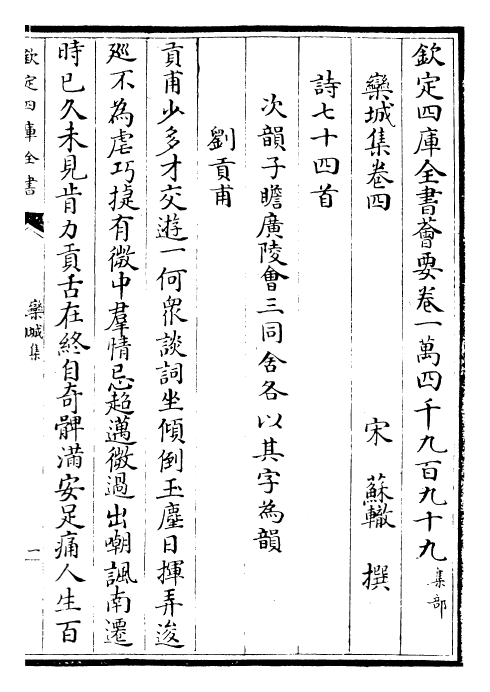 欽定四庫全書薈要卷一萬四千九百九十九集部
欒城集卷四
宋 蘇轍 撰
詩七十四首
次韻子瞻廣陵會三同舍各以其字為韻
劉貢甫
貢甫少多才交遊一何衆談詞坐傾倒玉麈日揮弄逡
廵不為虐巧捷有微中羣情忌超邁微過出嘲諷南遷
時已久未見肯力貢舌在終自奇髀滿安足痛人生百
欽定四庫全書
欒城集
一